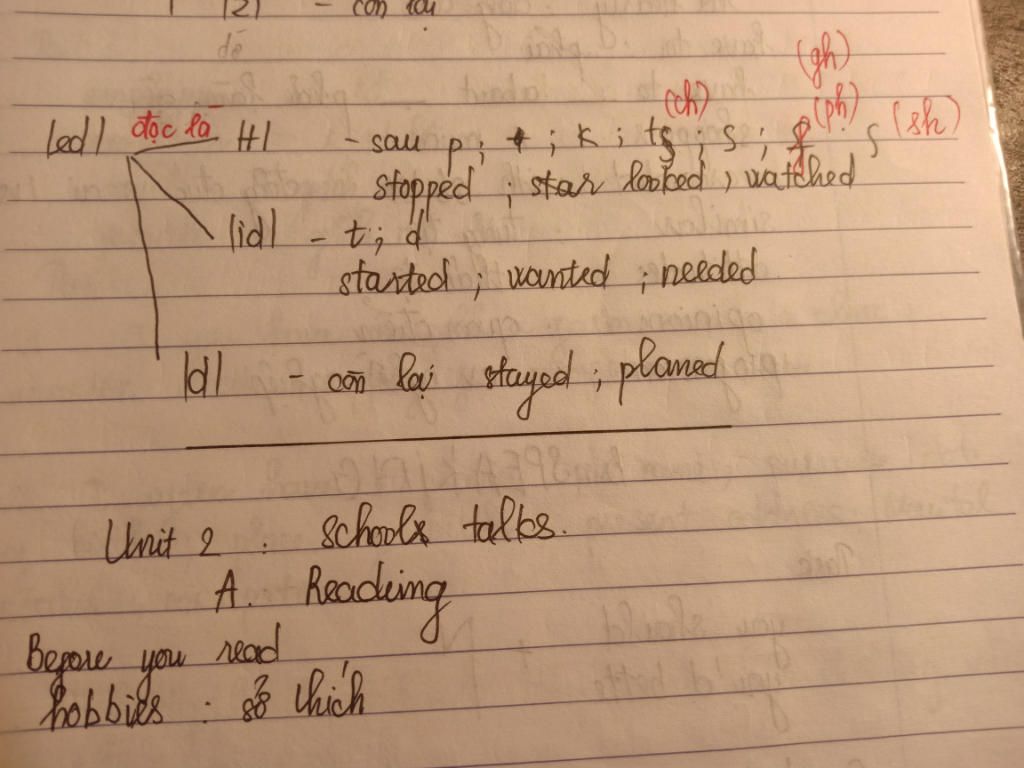 |z| - còn lại
(gh)
(ch) (ph)
|ed| đọc là |t| - sau p; k; tʃ; s; f ʃ (sh)
stopped; looked, watched
|id| - t; d
started; wanted; needed
|d| - còn lại stayed; planed
Unit 2 : schools talks.
A. Readeing
Before you read
hobbies : sở thích